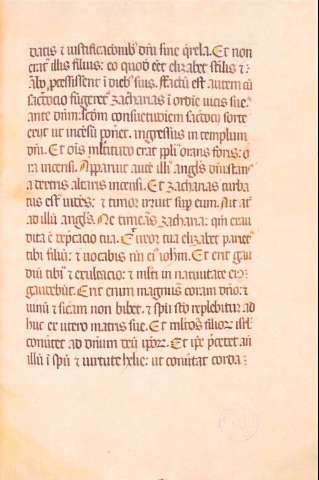 datis ⁊ iustificacõnib; dñi sine q̃rela. Et non
erat illis filius: eo quod eẽt elizabet sterilis ⁊
ãbo p̃cessissent ĩ dieb; suis. Factũ est autem cũ
sac̃docio fũgeret̃ zacharias ĩ ordie uicis sue
ante dñm: scd̃m consuetudinem sac̃docij sorte
exiit ut incẽsũ poñet. ingressus in templum
dñi. Et oĩs multitudo erat ppl̃i orans foris: o
ra incensi. Apparuit aut̃ illi angl̃s dñi stans
a dextris altaris incensi. Et zacharias turba
tus est uidẽs: ⁊ timor irruit sup eum. Ait aũt
ad illũ angl̃s. Ne timeãs zacharia: qm̃ exau
dita ẽ dep̃cacio tua. Et uxor tua elizabet pariet
tibi filiũ: ⁊ uocabis nm̃ ei; ioh̃m. Et erit gau
diũ tibi ⁊ exultacio: ⁊ mlt̃i in natiuitate ei;
gaudebũt. Erit enim magnus coram dño: ⁊
uinũ ⁊ siceram non bibet. ⁊ sp̃u sc̃o replebitur ad
huc ex utero matris sue. Et mltos filior̃ isrl̃
conũtet ad dñum deũ ipõr̃. Et ip̃e p̃cedet añ
illũ ĩ sp̃u ⁊ uirtute helie: ut conũtat corda